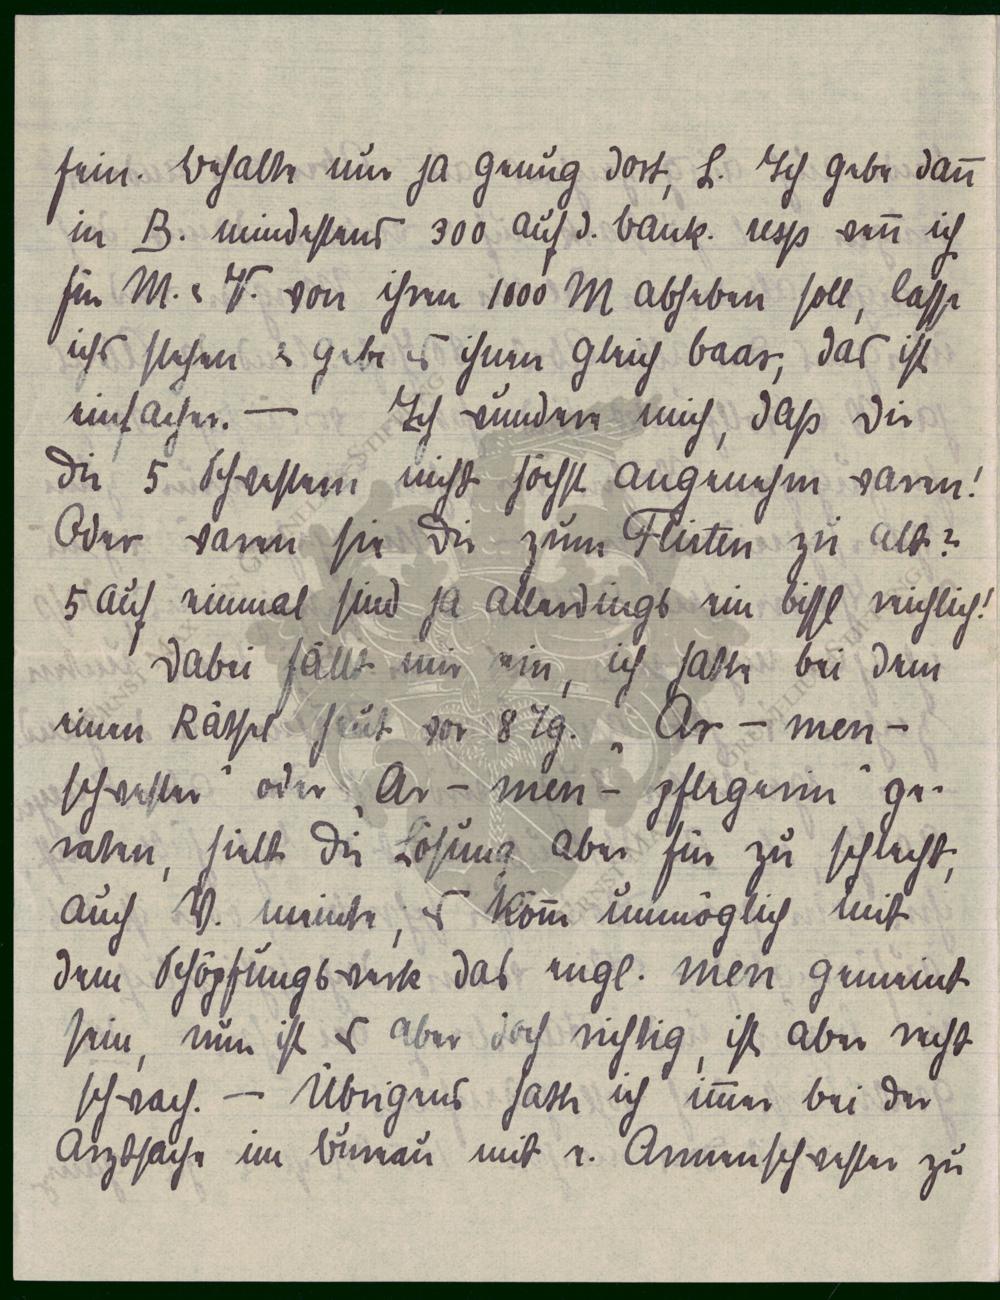 sein. Behalte nur ja genug dort, L. Ich gebe dañ
in B. mindestens 300 auf d. Bank. resp weñ ich
für M. & V. von ihren 1000 M abheben soll, lasse
ichs stehen & gebe es ihnen gleich baar, das ist
einfacher. — Ich wundere mich, daß Dir
die 5 Schwestern nicht höchst angenehm waren!
Oder waren sie Dir zum Flirten zu alt?
5 auf einmal sind ja allerdings ein bissl reichlich!
Dabei fällt mir ein, ich hatte bei dem
einen Räthsel heut vor 8 Tg. „Ar – men –
schwester" oder „Ar – men – pflegerin" ge-
raten, hielt die Lösung aber für zu schlecht,
auch V. meinte, es köñe unmöglich mit
dem Schöpfungswerk das engl. men gemeint
sein, nun ist es aber doch richtig, ist aber recht
schwach. — Übrigens hatte ich im̄er bei der
Arztsache im Bureau mit e. Armenschwester zu